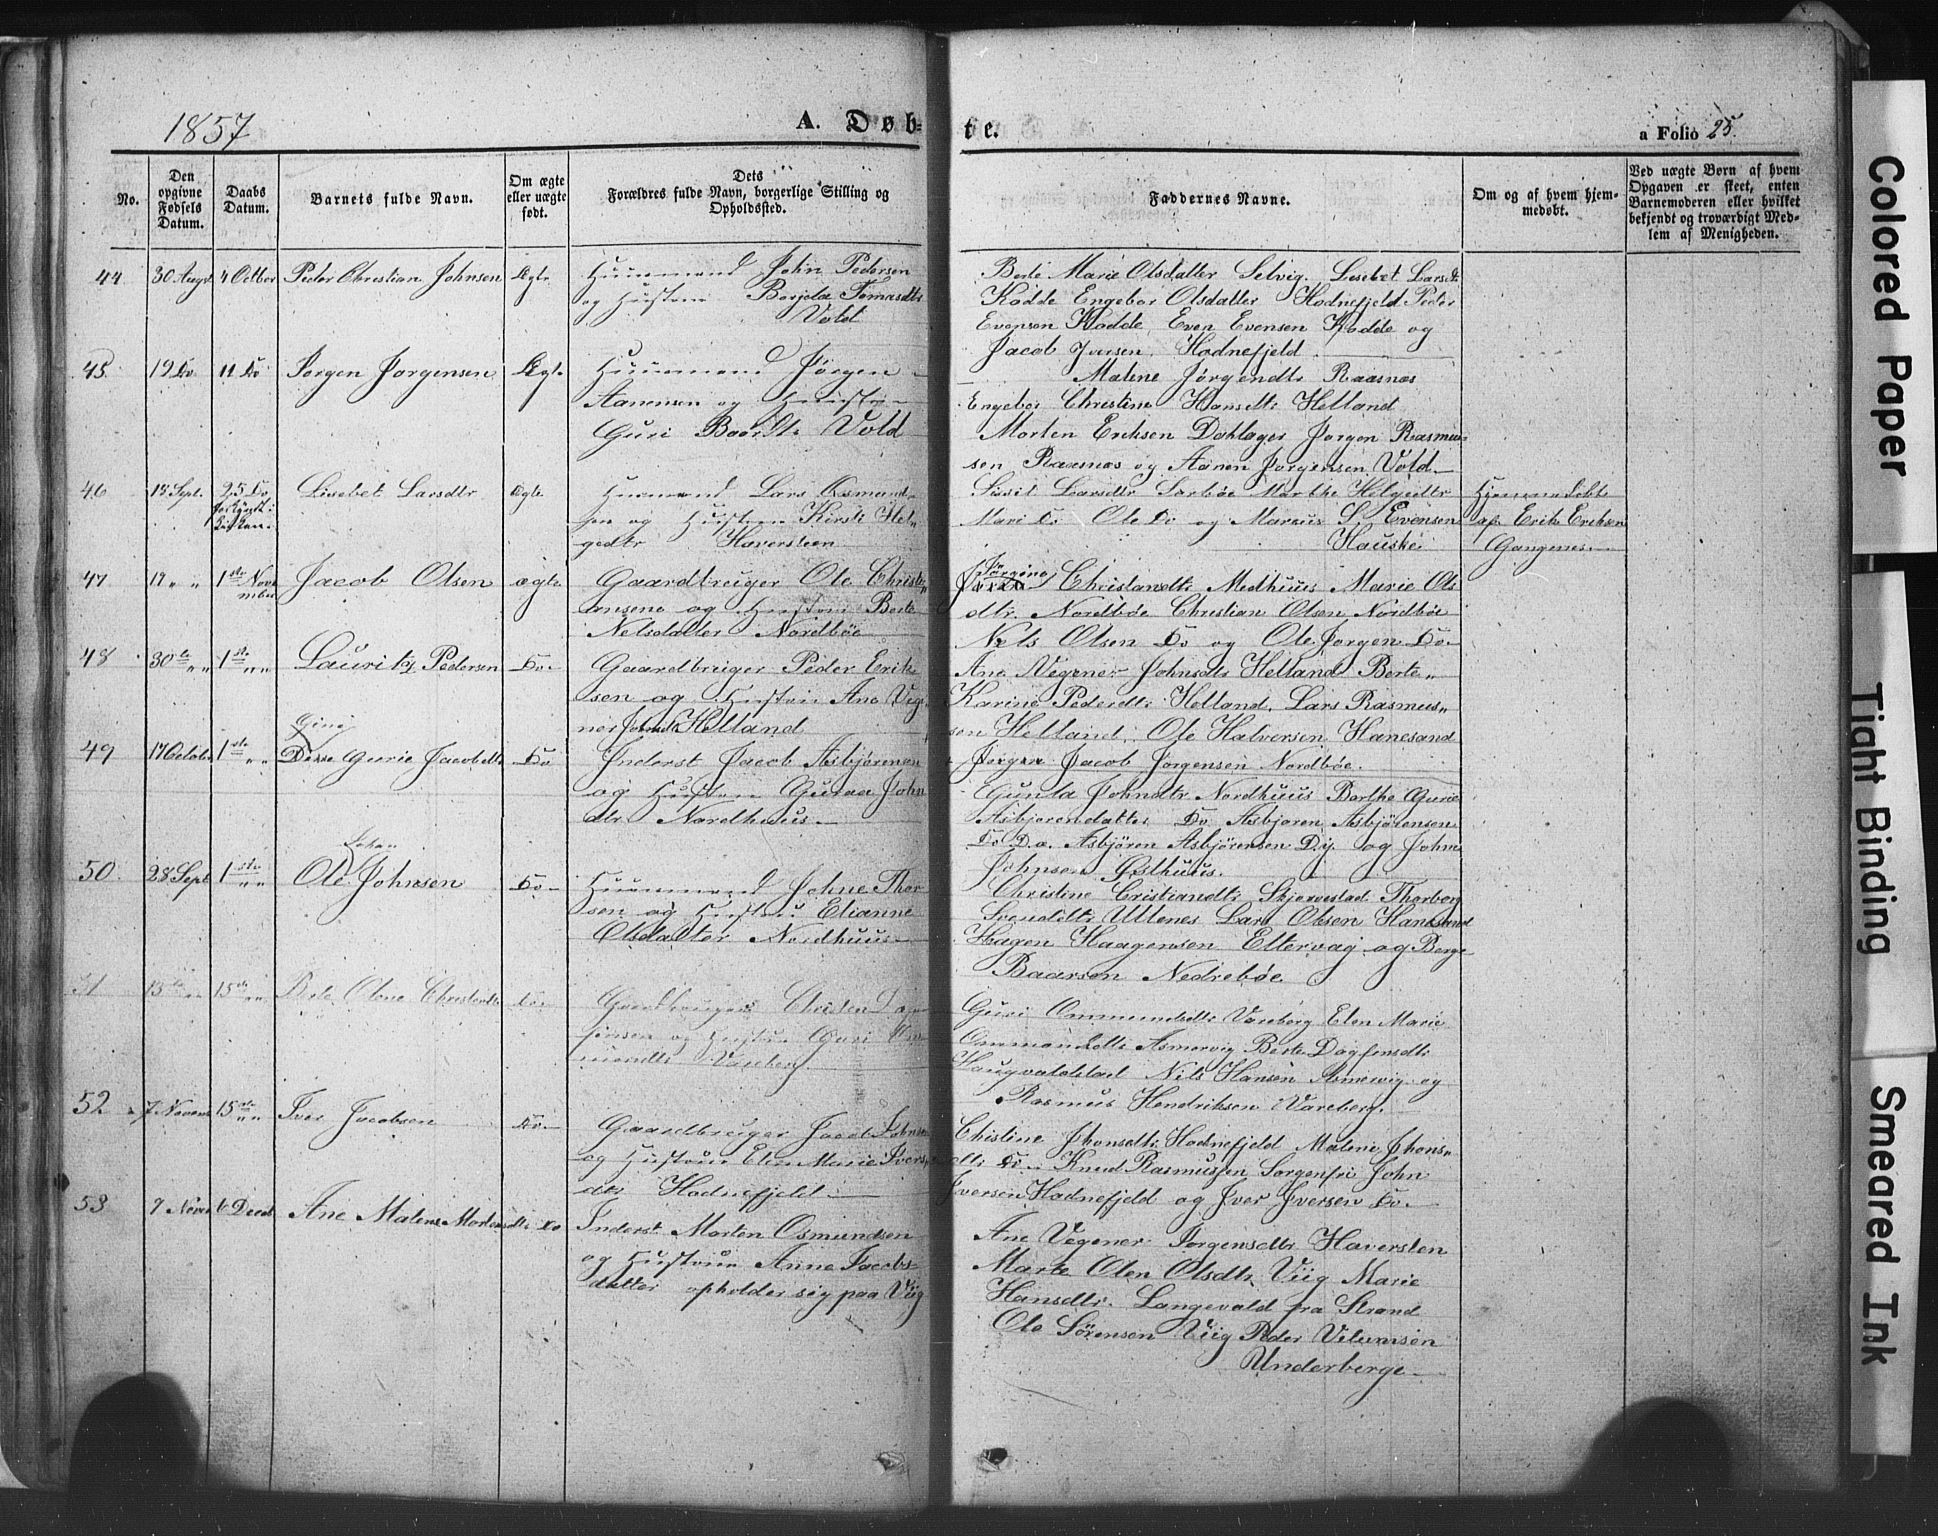 1857
A. Døb-
te.
a Folio 25.
No.
Den opgivne Fødsels Datum.
Daabs Datum.
Barnets fulde Navn.
Om ægte eller uægte født.
Dets Forældres fulde Navn, borgerlige Stilling og Opholdssted.
Faddernes Navne.
Om og af hvem hjem-
medøbt.
Ved uægte Børn af hvem
Opgaven er skeet, enten
Barnemoderen eller hvilket
bekjendt og troværdigt Med-
lem af Menigheden.
44 30 Augst 4 Octber Peder Christian Johnsen Ægte
Huusmand John Pedersen
og Hustru Berjela Tomasdtr
Vold
Berte Marie Olsdatter Selvig. Lisebet Larsdt
Kodde Engebor Olsdatter Hodnefjeld Peder
Evensen Kodde, Even Evensen Kodde og
Jacob Iversen Hodnefjeld.
45 19 Do 11 Do Jørgen Jørgensen Ægte
Huusmand Jørgen
Aanensen og Hustru
Guri Baardtr Vold
Malene Jørgendtr Raasnos
Engebor Christine Hansdtr Helland
Morten Eriksen Dahlager Jørgen Rasmus=
sen Raasnos og Aanen Jørgensen Vold
46 15 Sept. 25 Do
Kirken.
Lisebet Larsdtr Ægte
Huusmand Lars Osmund-
sen og Hustru Kirsti Hel-
gedtr Haversteen
Sissil Larsdtr Sørbøe Marthe Helgedtr
Mari Do Ole Do og Marcus S. Evensen
Hauske
Hjemmedøbt
af Erik Eriksen
Gangenes.
47 19 " " 1ste Nove
mber
Jacob Olsen ægte
Gaardbruger Ole Christi-
ansene og Hustru Berte
Nelsdatter Nordbøe
Jørgine Christiandtr Medhuus Marie Ols
dtr. Nordbøe Christian Olsen Nordbøe
Nels Olsen Do og Ole Jørgen Do
48 30te " " 1ste " " Lauritz Pedersen Do
Gaardbruger Peder Erik
sen og Hustru Ane Veg-
ner Johnsdtr Helland
Ane Vegener Johnsdtr Helland Berte "
Karine Pederdtr Helland, Lars Rasmus"
sen Helland, Ole Halversen Hanesand
Jørgen Jacob Jørgensen Nordbøe.
49 17 Octobr 1ste " "
Gine
Gurie Jacobdtr Do
Inderst Jacob Asbjørensen
og Hustru Guraa John
dtr Nordhuus
Gunla Johndtr Nordhuus Berthe Gurie
Asbjørendatter Do Asbjøren Asbjørensen
Do Do. Asbjøren Asbjørensen Dy. og Johne
Johnsen Østhuus.
50 28 Sept 1ste " "
Johan
Ole Johnsen Do
Huusmand Johne Thor
sen og Hustru Elianne
Olsdatter Nordhuus
Christine Cristiandtr Skjørvestad Thorborg
Svenddtr Utlenes Lars Olsen Hanesand
Hagen Haagensen Ettervag og Børge
Baarsen Nedrebøe
51 15te " " 15de " " Berte Olene Christendtr Do
Gaardbruger Christen Dag
finsen og Hustru Guri Om-
mundtr Vareberg
Guri Ommundsdtr Vareberg Elen Marie
Ommundsdtr Asmervig Berte Dagfensdtr
Haugvaldstad Nils Hansen Asmervig og
Rasmus Hendriksen Vareberg.
52 7 Novem 15de " " Iver Jacobsen Do
Gaardbruger Jacob Johnsen
og Hustru Elen Marie Ivers
dtr Hodnefjeld
Chistine Jhonsdtr Hodnefjeld Malene Jhons-
dtr Do Knud Rasmussen Sorgenfri John
Iversen Hodnefjeld og Iver Iversen Do
53 7 Nove 6 Decebr Ane Malene Mortensdtr Do
Inderst Morten Osmundsen
og Hustrue Anne Jacobs-
datter opholder sig paa Viig
Ane Vegener Jørgensdtr Haversten
Marte Olen Olsdtr Viig Marie
Hansdtr. Langevald fra Strand
Ole Sørensen Viig Peder Vilumsen
Underberge
Colored Paper
Tight Binding
Smeared Ink